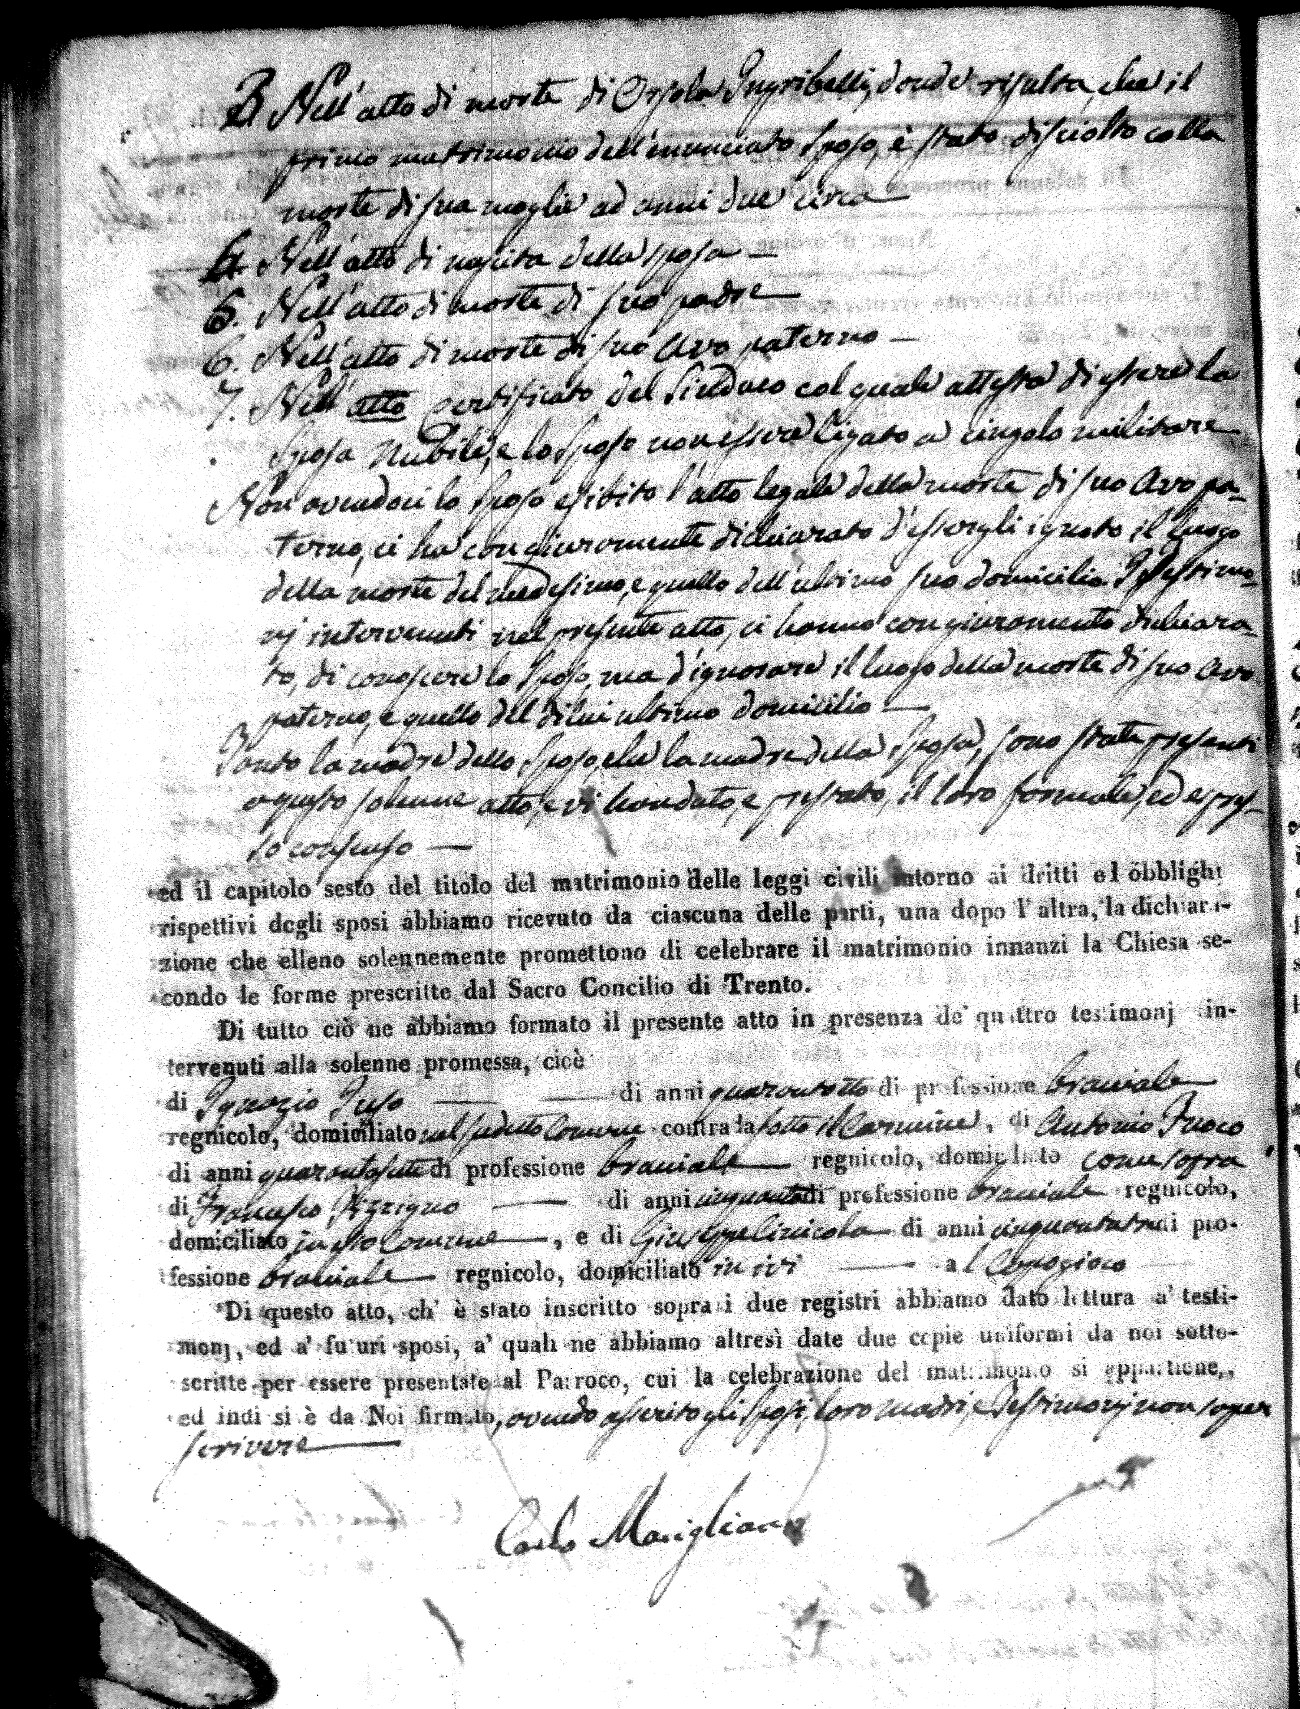 3. Nell'atto di morte di Orsola Ingribelli, donde risulta, che il
primo matrimonio dell'enunciato Sposo, è stato disciolto colla
morte di sua moglie ad anni due circa
4. Nell'atto di nascita della sposa —
5. Nell'atto di morte di suo padre —
6. Nell'atto di morte di suo Avo paterno —
7. Nell' atto certificato del Sindaco col quale attesta di essere la
Sposa nubile, e lo Sposo non essere ligato a cingolo militare
Non avendoci lo Sposo esibito l'atto legale della morte di suo Avo pa-
terno, ci ha con giuramento dichiarato d'essergli ignoto il luogo
della morte del medesimo, e quello dell'ultimo suo domicilio. I Testimo-
nj intervenuti nel presente atto, ci hanno con giuramento dichiara-
to, di conoscere lo Sposo, ma d'ignorare il luogo della morte di suo Avo
paterno, e quello del di lui ultimo domicilio —
Tanto la madre dello Sposo, che la madre della Sposa, sono state presenti
a questo solenne atto, e vi han dato, e prestato, il loro formale, ed espres-
so consenso —
ed il capitolo sesto del titolo del matrimonio delle leggi civili intorno ai dritti ed obblighi
rispettivi degli sposi abbiamo ricevuto da ciascuna delle parti, una dopo l'altra, la dichiara-
zione che elleno solennemente promettono di celebrare il matrimonio innanzi la Chiesa se-
condo le forme prescritte dal Sacro Concilio di Trento.
Di tutto ciò ne abbiamo formato il presente atto in presenza de' quattro testimonj in-
tervenuti alla solenne promessa, cioè
di Ignazio Fuso — — di anni quarantotto di professione braciale
regnicolo, domiciliato nel sudetto Comune contrada sotto il Carmine, di Antonio Fuoco
di anni quarantasette di professione braciale — regnicolo, domiciliato come sopra
di Francesco Pizzigno — di anni cinquanta di professione braciale regnicolo,
domiciliato in dto Comune —, e di Giuseppe Cinicola di anni cinquantatre di pro-
fessione braciale — regnicolo, domiciliato in ivi — al
Di questo atto, ch' è stato inscritto sopra i due registri abbiamo dato lettura a' testi-
monj, ed a' futuri sposi, a' quali ne abbiamo altresì date due copie uniformi da noi sotto-
scritte per essere presentate al Parroco, cui la celebrazione del matrimonio si appartiene,
ed indi si è da Noi firmato, avendo asserito gli Sposi, loro madri, e Testimonj non saper
scrivere —
Carlo Marigliano